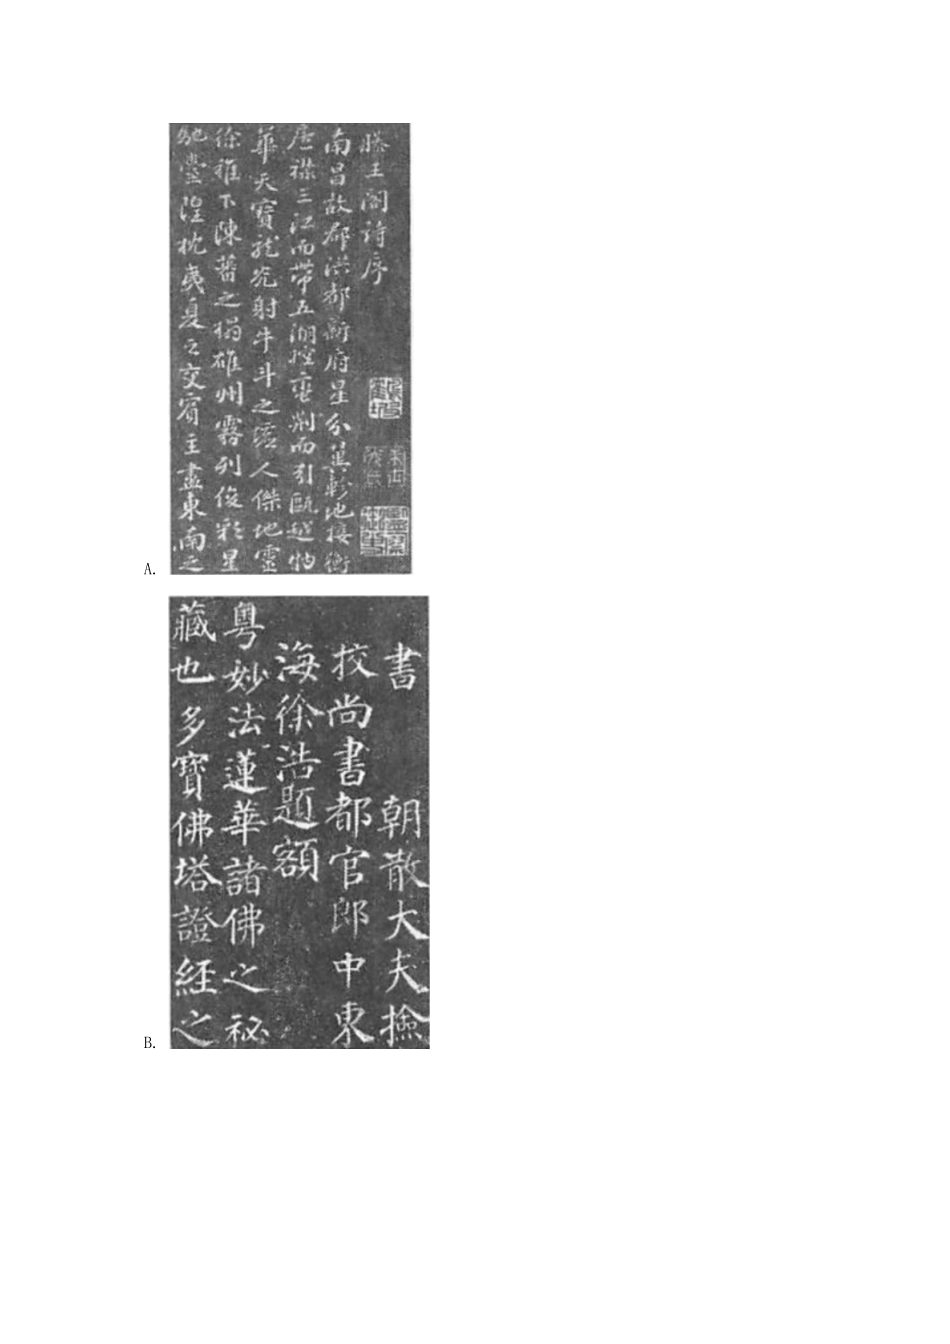 滕王閣詩序
南昌故郡洪都新府星分翼軫地接衡
廬襟三江而帶五湖控蠻荆而引甌越物
華天寶龍光射牛斗之墟人傑地靈
徐稚下陳蕃之榻雄州霧列俊彩星
馳臺隍枕夷夏之交賓主盡東南之
A.
書 朝散大夫撿
校尚書都官郎中東
海徐浩題額
粵妙法蓮華諸佛之祕
藏也多寶佛塔證經之
B.